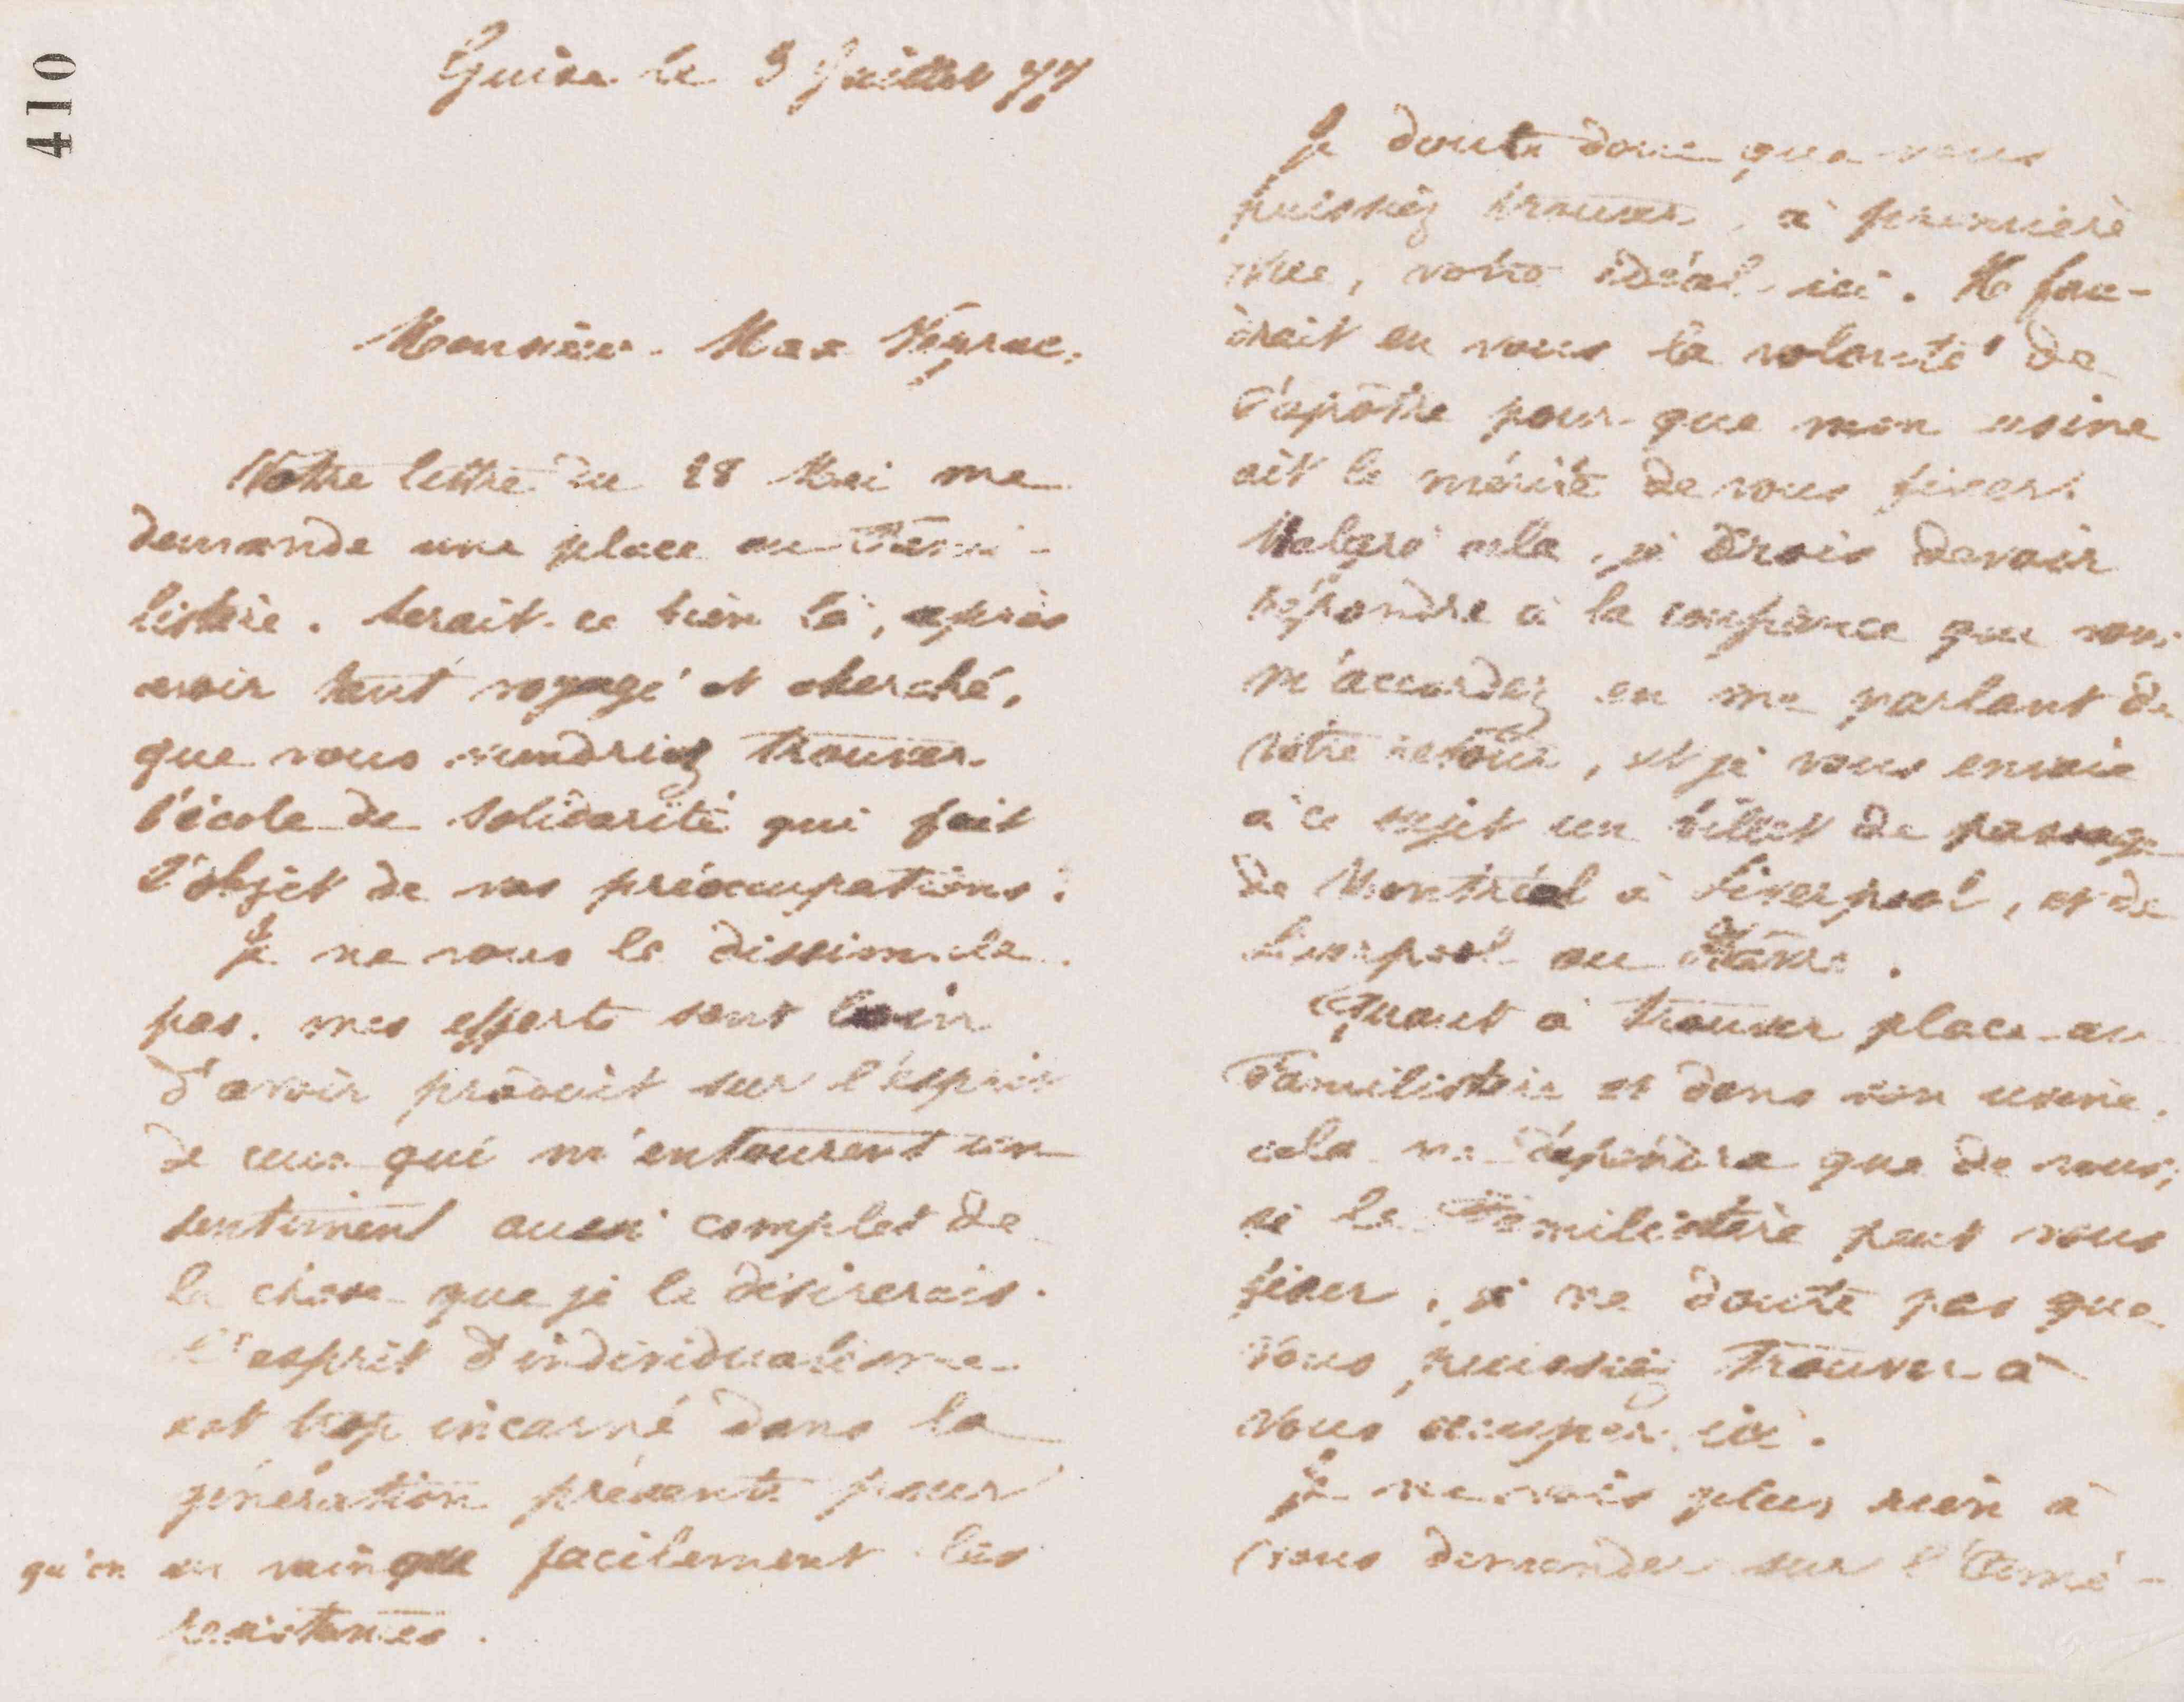 410
Guise le 3 Juillet 77
Monsieur Max Veyrac,
Votre lettre du 28 Mai me
demande une place au Fami-
listère. Serait-ce bien là, après
avoir tant voyagé et cherché,
que vous viendriez trouver
l'école de solidarité qui fait
l'objet de vos préoccupations.
Je ne vous le dissimule
pas. mes efforts sont loin
d'avoir produit sur l'esprit
de ceux qui m'entourent un
sentiment aussi complet de
la chose que je le désirerais.
L'esprit d'individualisme
est trop incarné dans la
génération présente pour
qu'on en vainque facilement les
resistances.
Je doute donc que vous
puissiez trouver, à première
vue, votre idéal ici. Il fau-
drait en vous la volonté de
l'apôtre pour que mon usine
ait le mérite de vous fixer.
Malgré cela, je crois devoir
répondre à la confiance que vous
m'accordez en me parlant de
votre retour, et je vous envoie
à ce sujet un billet de passage
de Montréal à Liverpool, et de
Liverpool au Hâvre.
Quant à trouver place au
Familistère et dans son usine,
cela ne dépendra que de vous;
si le Familistère peut vous
fixer, je ne doute pas que
vous puissiez trouver à
vous occuper ici.
Je ne vois plus rien à
vous demander sur l'Amé-